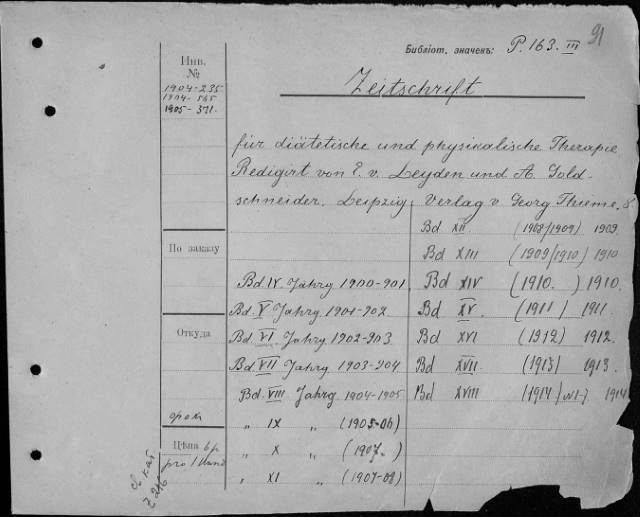 91
Библіот. значекъ: P. 163. III
Инв.
№
1904-235
1904-565
1905-371.
Zeitschrift
für diätetische und physikalische Therapie
Redigirt von E. v. Leyden und A. Gold-
schneider. Leipzig, Verlag v. Georg Thieme. 8.
По заказу
Откуда
Цѣна 6 р
pro 1 Band
Bd. IV. Jahrg 1900-901.
Bd. V Jahrg 1901-902
Bd. VI. Jahrg 1902-903
Bd. VII Jahrg 1903-904
Bd. VIII Jahrg 1904-1905
„ IX „ (1905-06)
„ X „ (1907.
„ XI „ (1907-08)
Bd XII. (1908/1909) 1909
Bd XIII (1909/1910) 1910
Bd XIV (1910.) 1910.
Bd XV. (1911) 1911.
Bd XVI (1912) 1912.
Bd XVII. (1913) 1913.
Bd XVIII (1914 1914